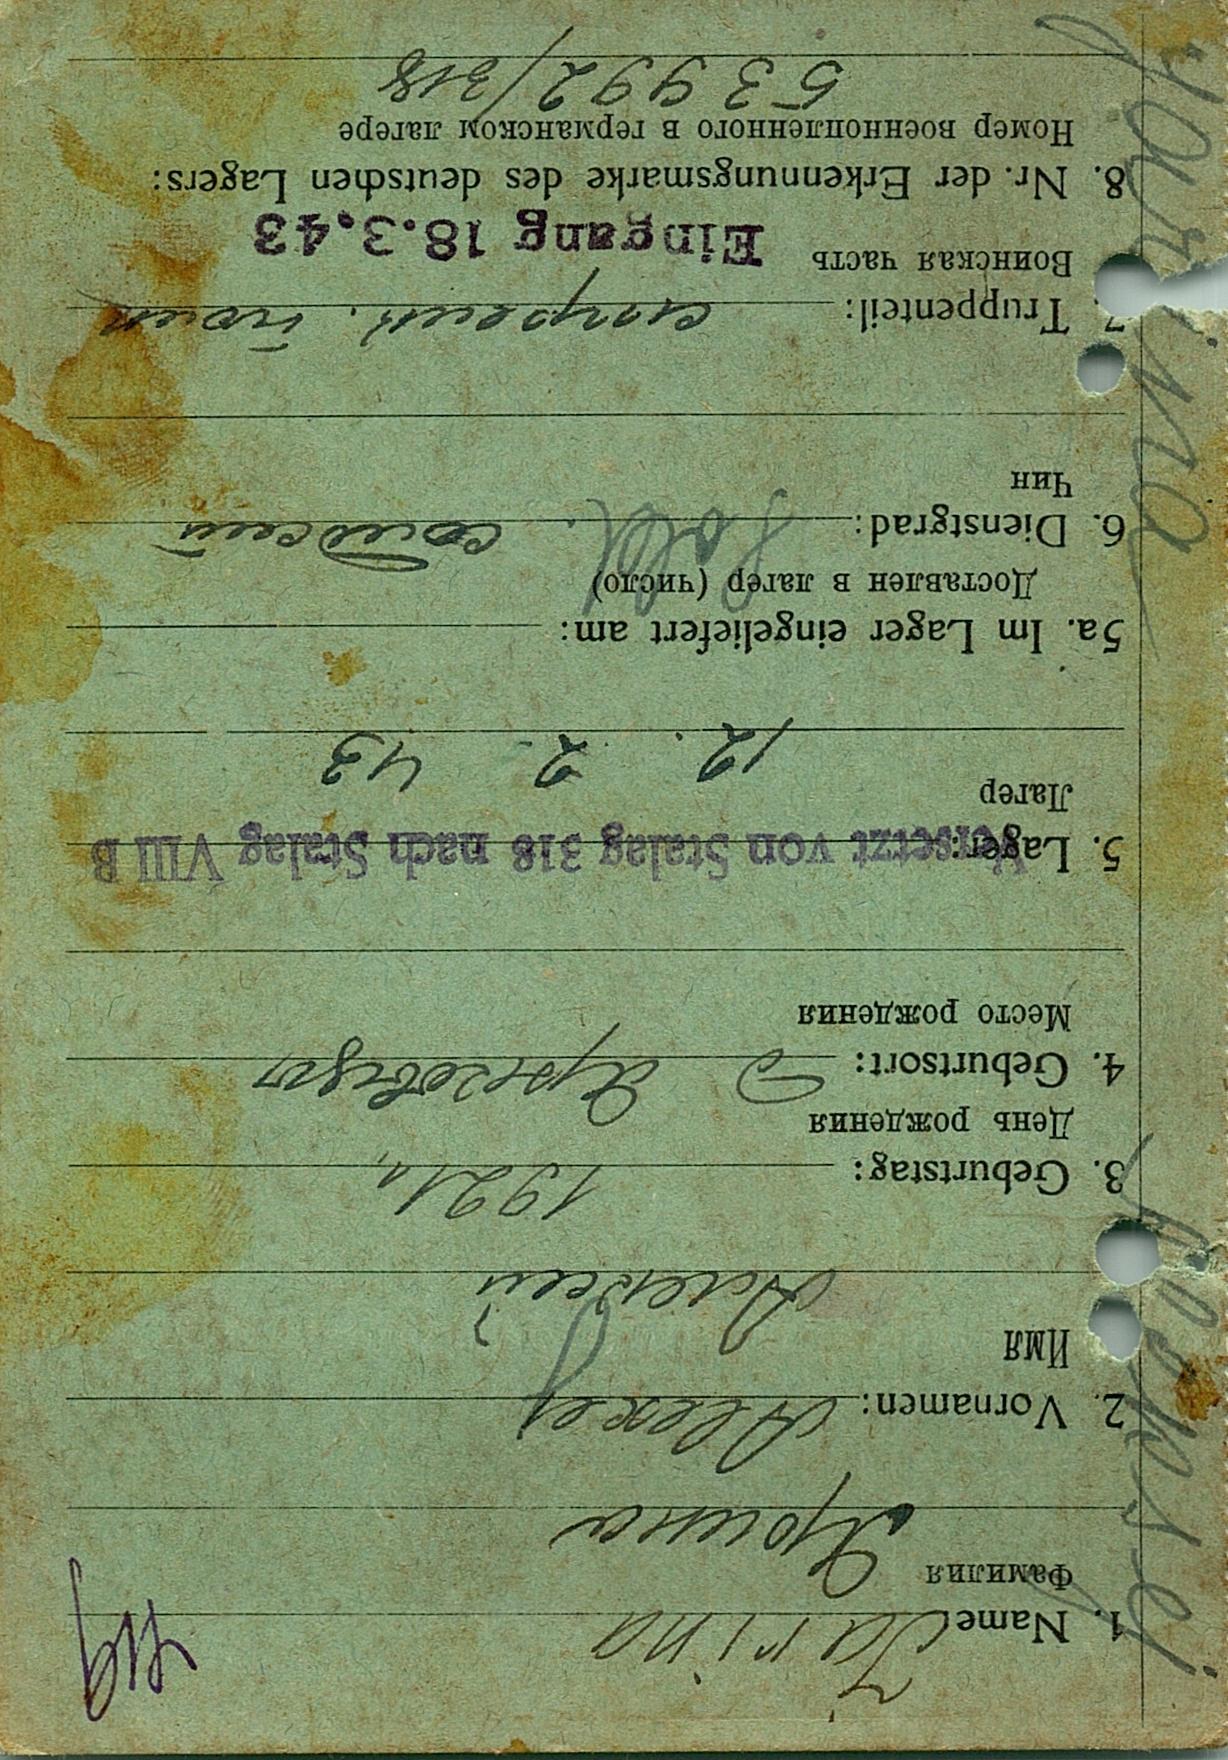 1. Name: Jarina
Фамилия Ярина
2. Vornamen: Alexej
Имя
Алексей
3. Geburtstag: 1921 г.
День рождения
4. Geburtsort:
Место рождения
5. Lager: Versetzt von Stalag 318 nach Stalag VIII B
Лагер
12. 2. 43
5a. Im Lager eingeliefert am:
Доставлен в лагер (число)
6. Dienstgrad: Sold.
Чин
7. Truppenteil:
Воинская часть Eingang 18.3.43
8. Nr. der Erkennungsmarke des deutschen Lagers:
Номер военнопленного в германском лагере
53992/318